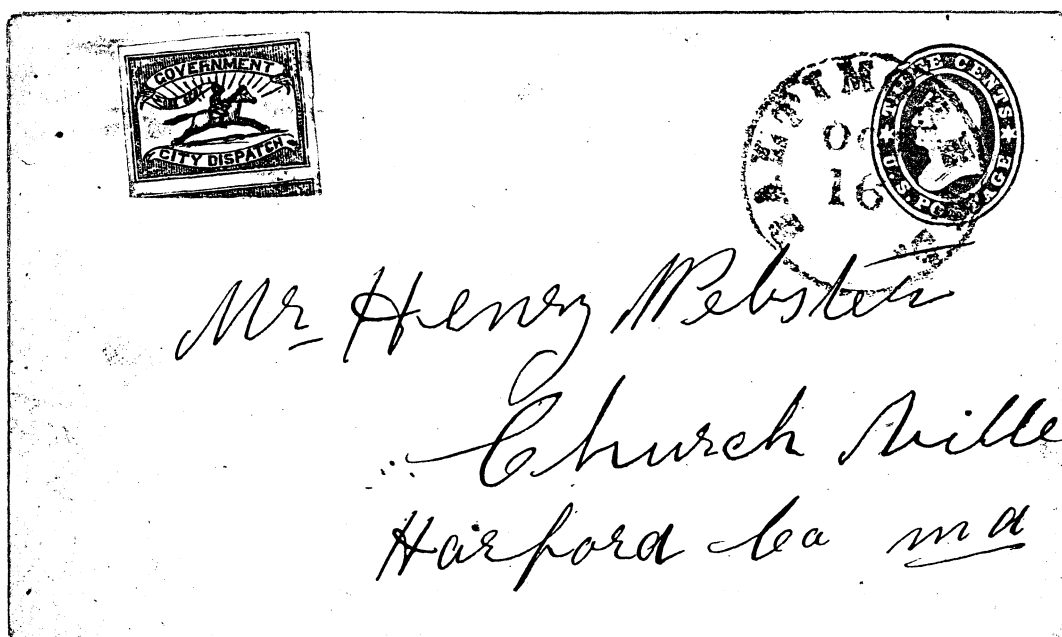 GOVERNMENT
CITY DISPATCH
THREE CENTS
U.S. POSTAGE
16
Mr Henry Webster
Church Ville
Harford Co Md